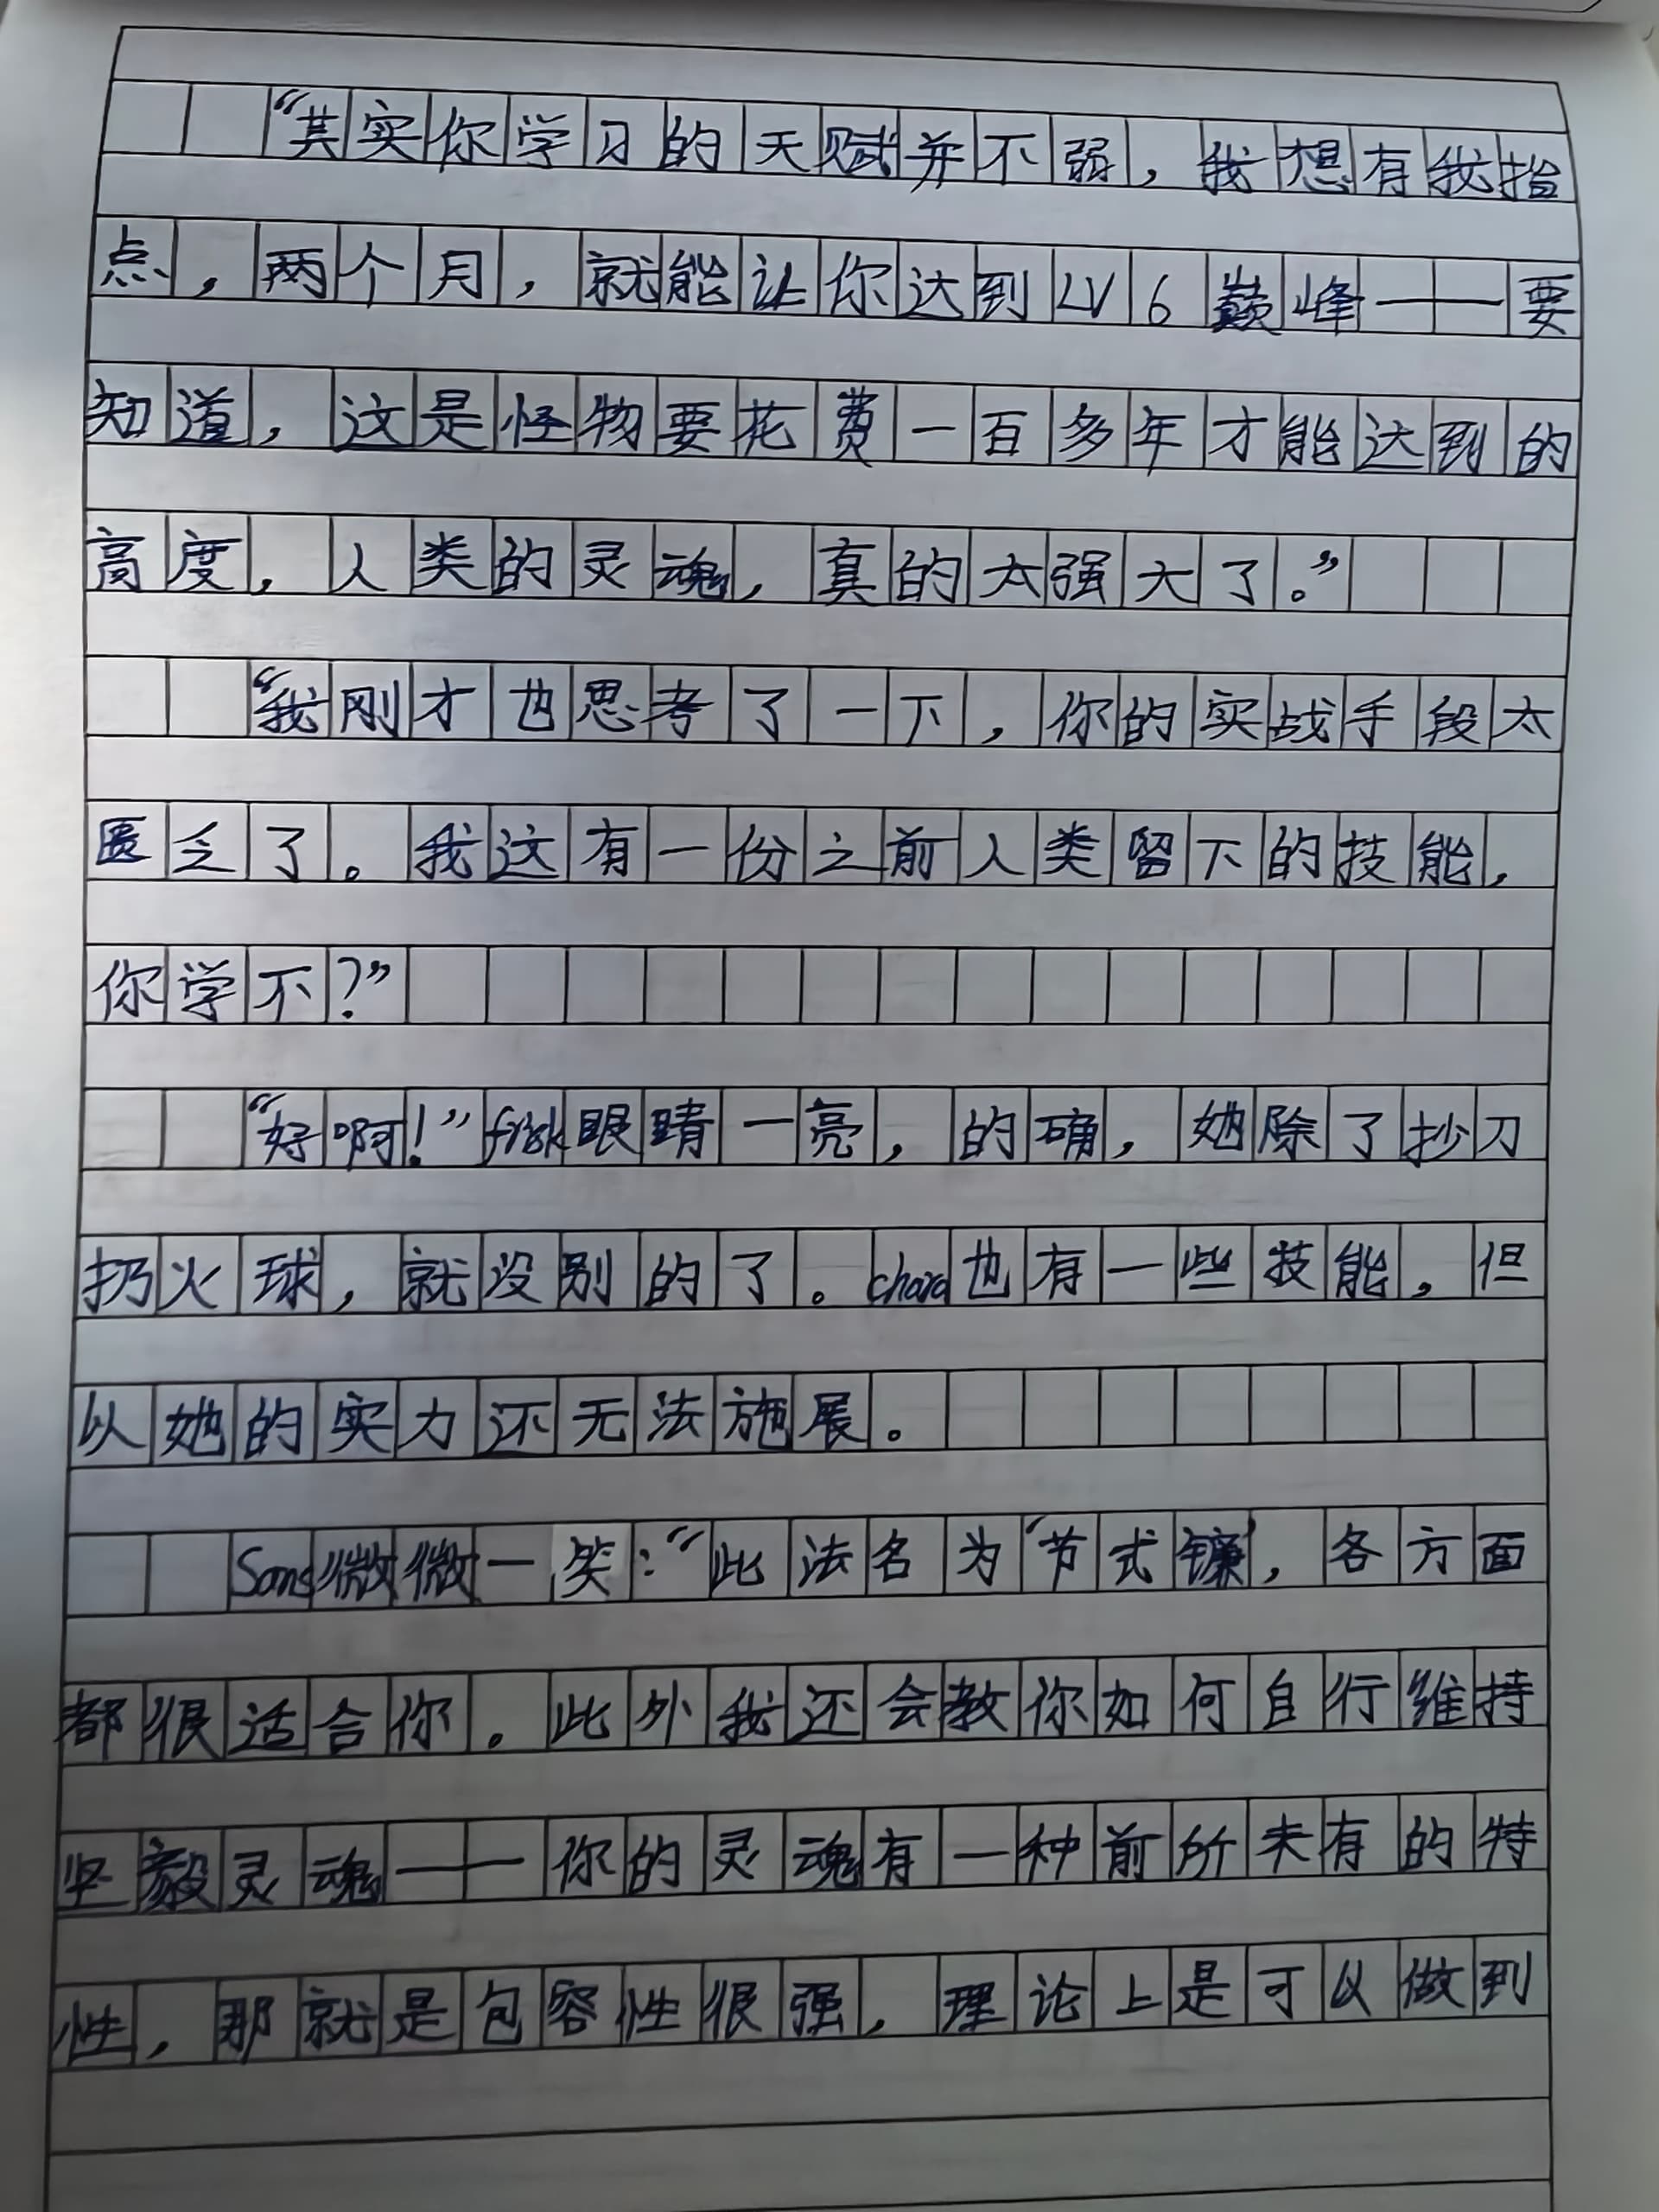 “其实你学习的天赋并不弱，我想有我指
点，两个月，就能让你达到LV6巅峰——要
知道，这是怪物要花费一百多年才能达到的
高度，人类的灵魂，真的太强大了。”
“我刚才也思考了一下，你的实战手段太
匮乏了。我这有一份之前人类留下的技能，
你学不？”
“好啊！”frisk眼睛一亮，的确，她除了抄刀
扔火球，就没别的了。chara也有一些技能。但
以她的实力还无法施展。
Sans微微一笑：“此法名为‘节式镰’，各方面
都很适合你。此外我还会教你如何自行维持
坚毅灵魂——你的灵魂有一种前所未有的特
性，那就是包容性很强，理论上是可以做到